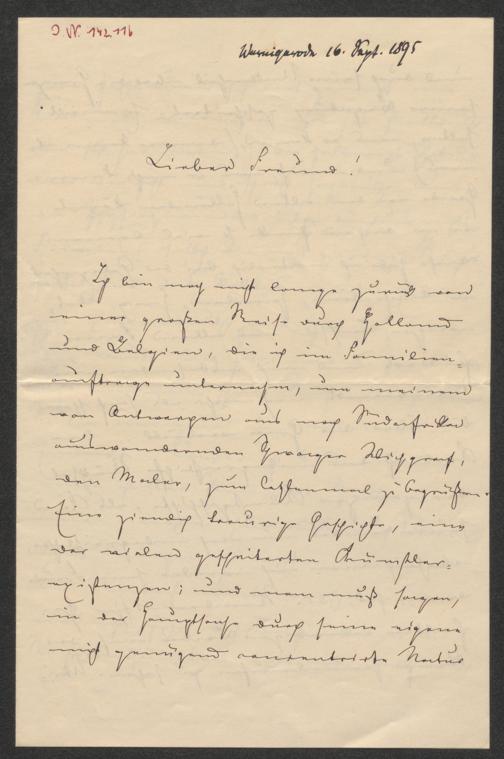 J. N. 142.116
Wernigerode 16. Sept. 1895
Lieber Freund!
Ich bin noch nicht lange zurück von
einer großen Reise durch Holland
und Belgien, die ich im Familien-
auftrage unternahm, um meinen
von Antwerpen aus nach Südafrika
auswandernden Schwager Wichgraf,
den Maler, zum letztenmal zu begrüßen.
Eine ziemlich traurige Geschichte, eine
der vielen gescheiterten Künstler-
existenzen; und man muß sagen,
in der Hauptsache durch seine eigene
nicht genügend konzentrirte Natur